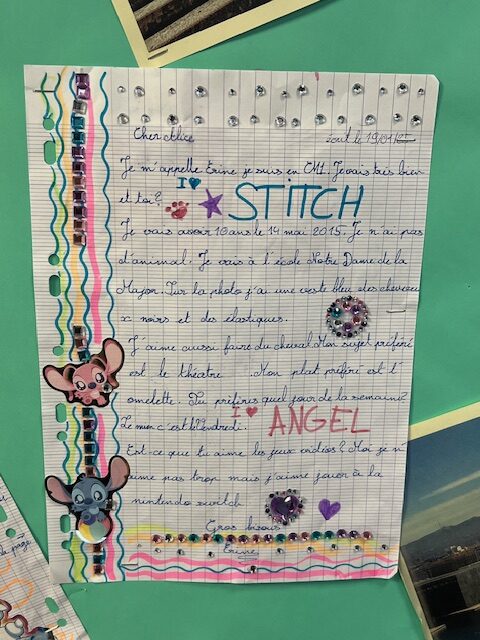 Cher Alice
écrit le 19/01/25
Je m'appelle Erine je suis en CM1. Je vais très bien
I
et toi? STITCH
Je vais avoir 10 ans le 14 mai 2015. Je n'ai pas
d'animal. Je vais à l'école Notre Dame de la
Major. Sur la photo j'ai une veste bleu, des cheveux
x noirs et des élastiques.
J'aime aussi faire du cheval. Mon sujet préféré
est le théatre. Mon plat préféré est l'
omelette. Tu préfères quel jour de la semaine?
I ANGEL
Le mien c'est le Vendredi.
Est-ce que tu aime les jeux vidéos? Moi je n'
aime pas trop mais j'aime jouer à la
nintendo switch
Gros bisous
Erine